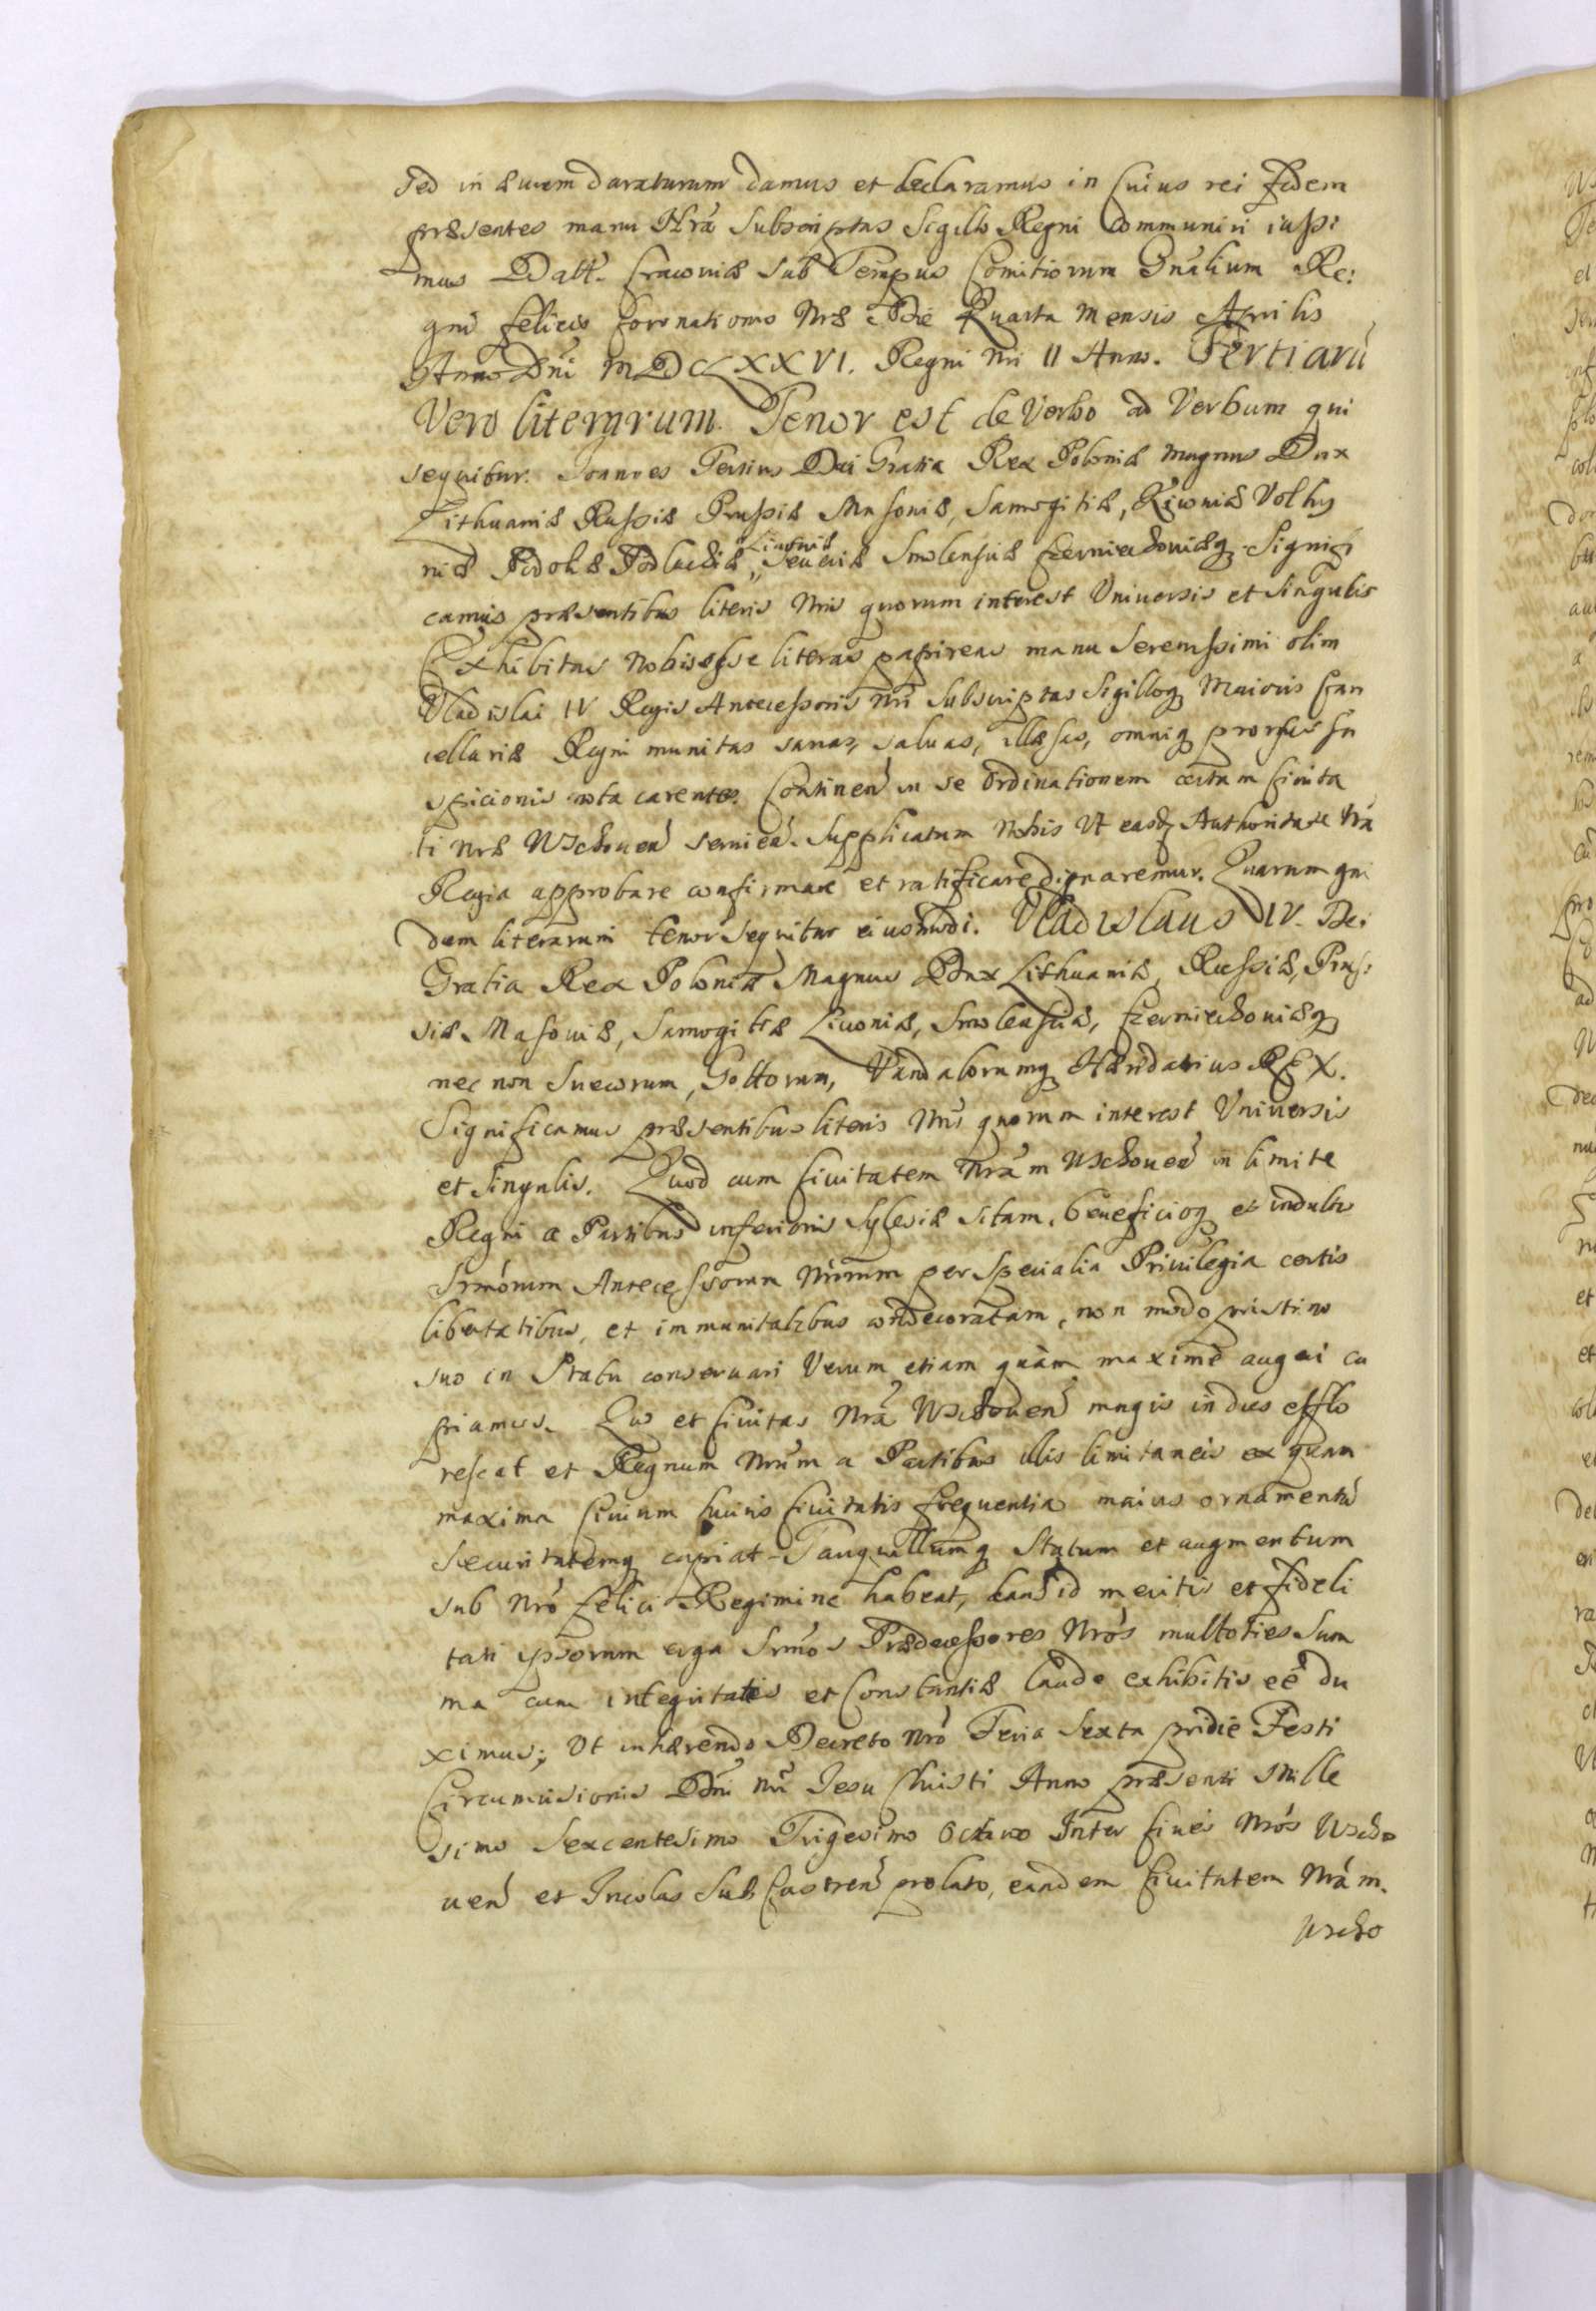 Sed in æuum duraturum damus et declaramus in Cuius rei fidem
præsentes manu Nrã Subscriptas Sigillo Regni Communiri iussi
mus Datt. Cracoviæ sub Tempus Comitiorum Gnãlium Re:
gni felicis Coronationis Nræ Die Quarta Mensis Aprilis
Anno Dni MDCLXXVI. Regni Nri II Anno. Tertiarũ
Vero literarum Tenor est de Verbo ad Verbum qui
sequitur. Joannes Tertius Dei Gratia Rex Poloniæ Magnus Dux
Lithuaniæ Russiæ Prussiæ Masoviæ, Samogitiæ, Kioviæ Volhy
niæ Podoliæ Podlachiæ, Livoniæ Seueriæ Smolensciæ Czerniechoviæq Signifi
camus præsentibus literis Nris quorum interest Vniuersis et Singulis
Exhibitas Nobis esse literas papireas manu Serenissimi olim
Vladislai IV Regis Antecessoris Nri Subscriptas Sigilloq Maioris Can
cellariæ Regni munitas sanas, saluas, illæsas, omniq prorsus su
spicionis nota carentes. Continen in se Ordinationem certam Ciuita
ti Nræ Wschouen seruien. Supplicatum Nobis Vt easdq Authoritate Nrã
Regia approbare confirmare et ratificare dignaremur. Quarum qui
dem literarum tenor sequitur eiusmodi. Vladislaus IV. Dei
Gratia Rex Poloniæ Magnus Dux Lithuaniæ, Russiæ, Prus:
siæ Masouiæ, Samogitiæ Liuoniæ, Smolensciæ, Czerniechoviæq
nec non Suecorum, Gottorum, Vandalorumq Hæredatrius REX.
Significamus præsentibus literis Nris quorum interest Vniuersis
et Singulis. Quod cum Ciuitatem Nrãm Wschouen in limite
Regni a Partibus inferioris Sylesiæ sitam, beneficioq et indultu
Srmorum Antecessorum Nrorum per Specialia Priuilegia certis
libertatibus, et immunitatibus condecoratam, non modo pristino
suo in Statu conseruari Verum etiam quàm maximè augeri cu
piamus. Quo et Ciuitas Nrã Wschouen magis in dies efflo
rescat et Regnum Nrum a Partibus illis limitaneis ex quam
maxima Ciuium huius Ciuitatis frequentia maius ornamentũ
Securitatemq capiat Tanquillumq Statum et augmentum
sub Nro felici Regimine habeat, haud id meritis et fideli
tati ipsorum erga Srmos Prædecessores Nros multoties Sum
ma cum integritatis et Constantiæ laude exhibitis eé du
ximus; Vt inhærendo Decreto Nro Feria Sexta pridie Festi
Circumcisionis Dni Nri Jesu Christi Anno præsenti Mille
simo Sexcentesimo Trigesimo Octauo Inter Ciues Nros Wscho
uen et Incolas Sub Castren prolato, eandem Ciuitatem Nrãm.
Wscho